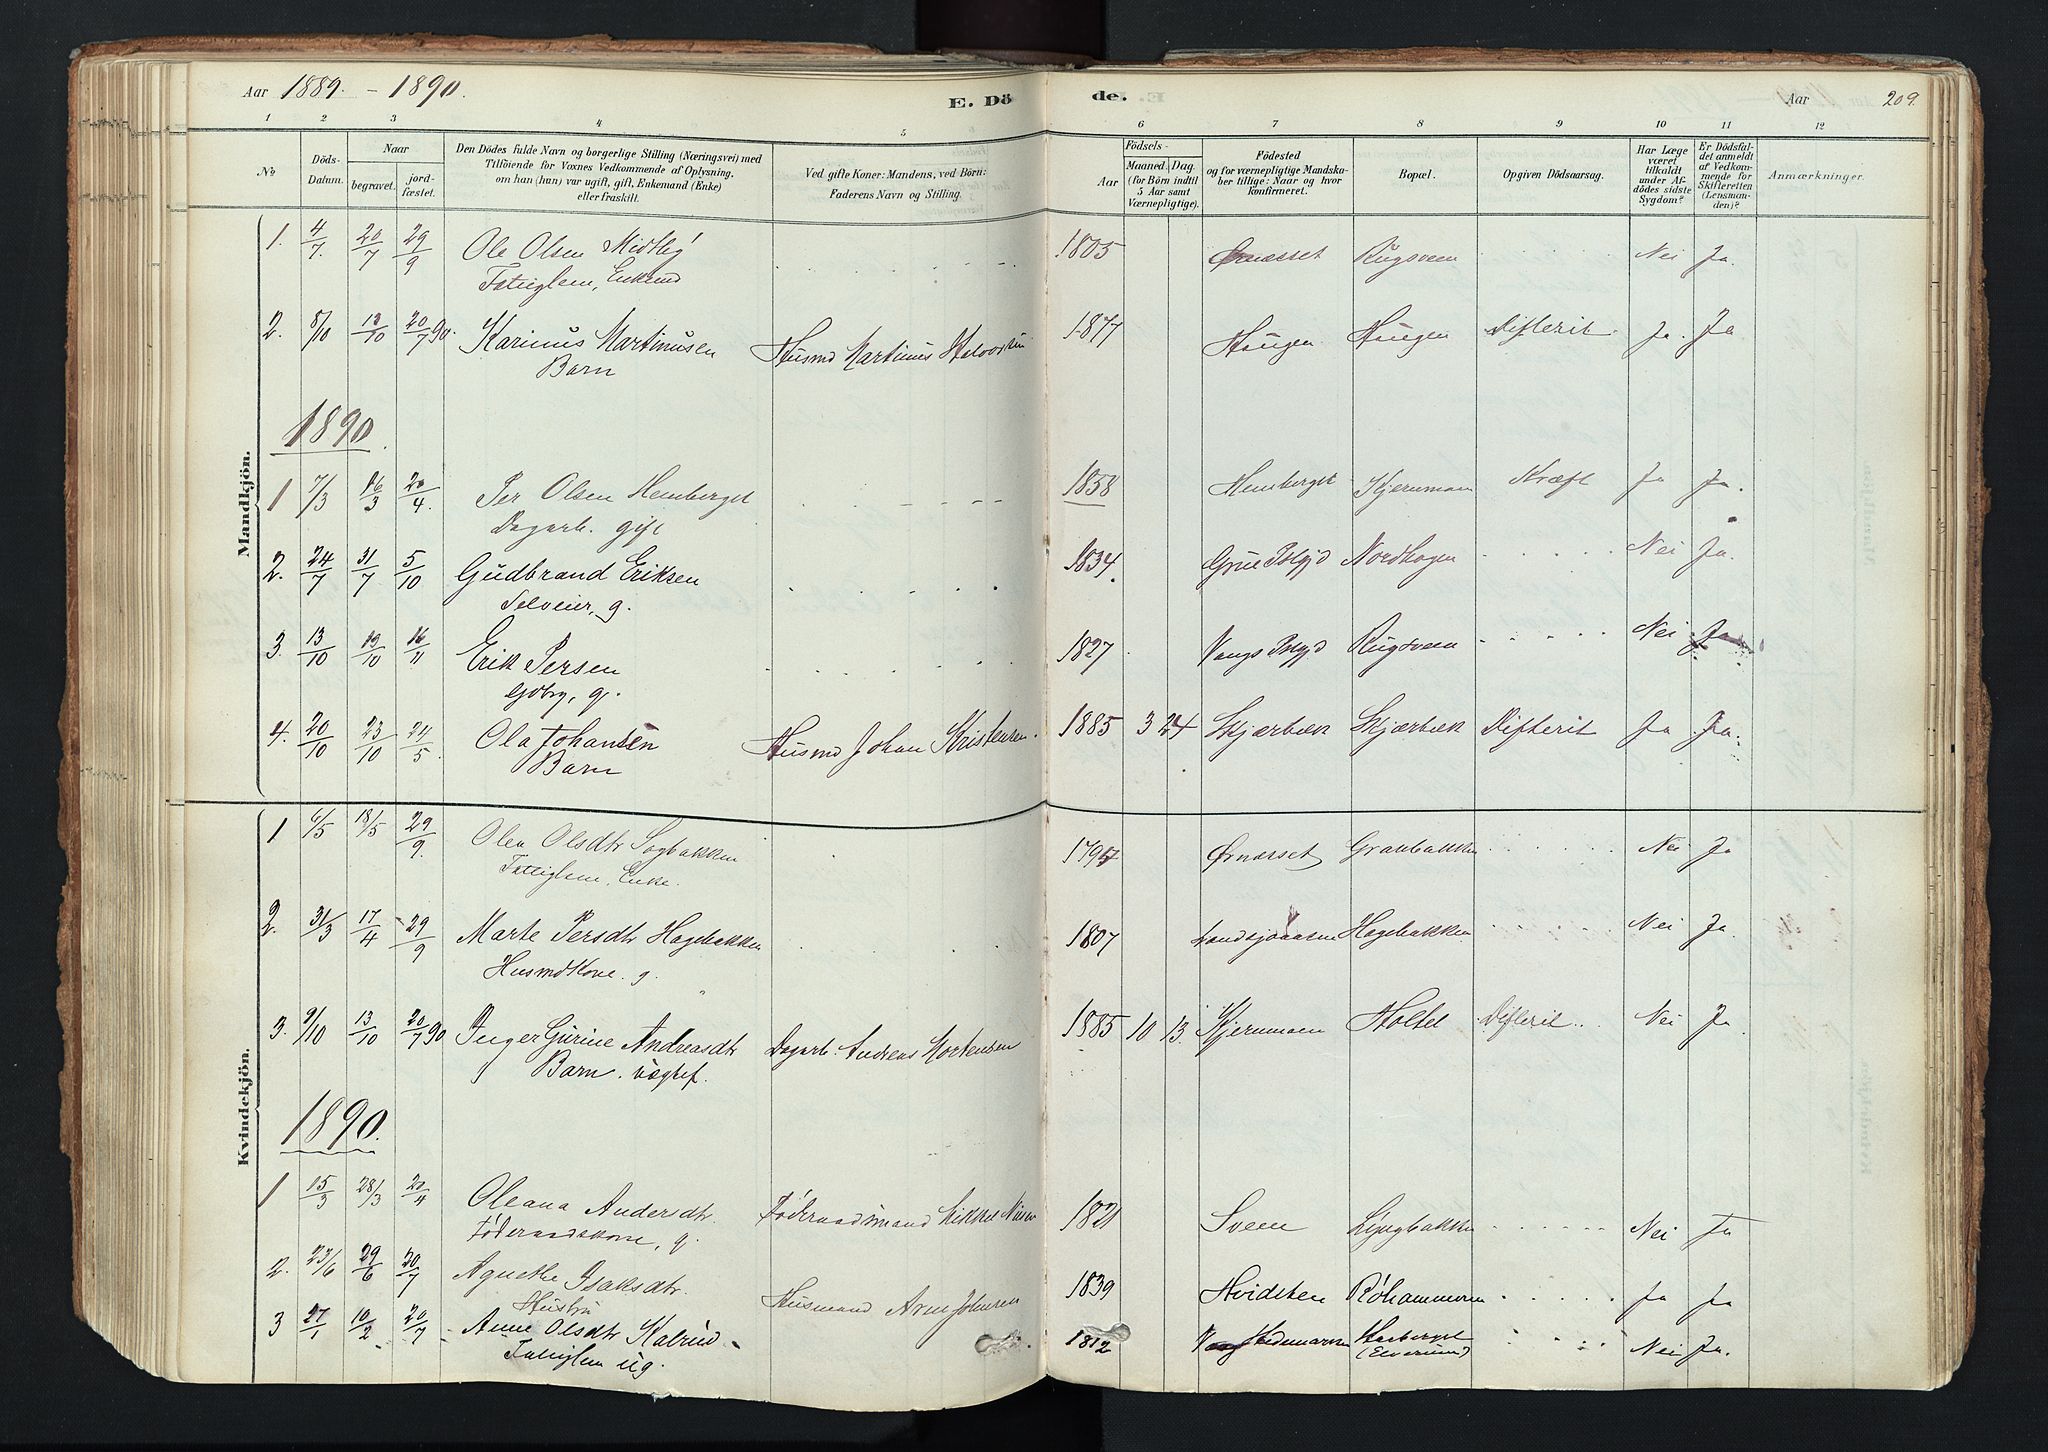 Aar 1889 - 1890.
E. Döde.
Aar 209.
1 2 3 4 5 6 7 8 9 10 11 12
No
Döds-Datum.
Naar
begravet.
jord-fæstet.
Den Dödes fulde Navn og borgerlige Stilling (Næringsvei) med
Tilföiende for Voxnes Vedkommende af Oplysning,
om han (hun) var ugift, gift, Enkemand (Enke)
eller fraskilt.
Ved gifte Koner: Mandens, ved Börn:
Faderens Navn og Stilling.
Födsels-
Aar
Maaned. Dag.
(for Börn indtil
5 Aar samt
Værnepligtige).
Födested
og for værnepligtige Mandska-
ber tillige: Naar og hvor
konfirmeret.
Bopæl.
Opgiven Dödsaarsag.
Har Læge
været
tilkaldt
under Af-
dödes sidste
Sygdom?
Er Dödsfal-
det anmeldt
af Vedkom-
mende for
Skifteretten
(Lensman-
den)?
Anmærkninger.
Mandkjön.
1. 4/7. 20/7 29/9 Ole Olsen 1805 Ørnæsset Rugsveen Nei Ja.
Fattiglem, Enkemd
2. 8/10 13/10 20/7 90. Karinus Martinusen Husmd Martinus 1877 Haugen Haugen Difterit Ja. Ja
Barn
1890.
1 7/3 16/3 20/4. Per Olsen Hemberget 1858 Hemberget Kjernmoen Kræft Ja Ja.
Dagarb. gift
2. 24/7 31/7 5/10 Gudbrand Eriksen 1834 Grue Pstgjd Nordhagen Nei Ja.
Selveier, g.
3. 13/10 19/10 16/11 Erik Persen 1827 Vangs Pstgjd Rugsveen Nei Ja
Gdbrg, g.
4. 20/10 23/10 24/5. Ola Johansen Husmd Johan Kristensen. 1885 3 24 Skjærbæk Skjærbæk Difterit Ja Ja.
Barn
Kvindekjön.
1 6/5 18/5 29/9. Olea Olsdtr Sagbakken 1797 Ørnæsset Nei Ja
Fattiglem, Enke.
2. 31/3 17/4 29/9 Marte Persdtr Hagebakken 1807 Hagebakken Nei Ja
Husmdkone. g.
3. 9/10 13/10 20/7 90 Inger Gurine Andreasdtr Dagarb. Andreas Mortensen 1885 10 13. Kjernmoen Holtet Difterit Nei Ja
Barn.
1890.
1 15/3 28/3 20/4 Oleana Andersdtr. Föderaadsmand Mikkel 1821 Sveen Nei Ja
Föderaadskone, g.
2. 23/6 29/6 20/7 Agnethe Isaksdtr. Husmand Arne Johnsen 1839 Hvidsten Røhammeren Ja Ja
Hustru
3 27/1 10/2 20/7 Anne Olsdtr 1812 Hedemarken (Elverum) Nei Ja.
Fattiglem ug.